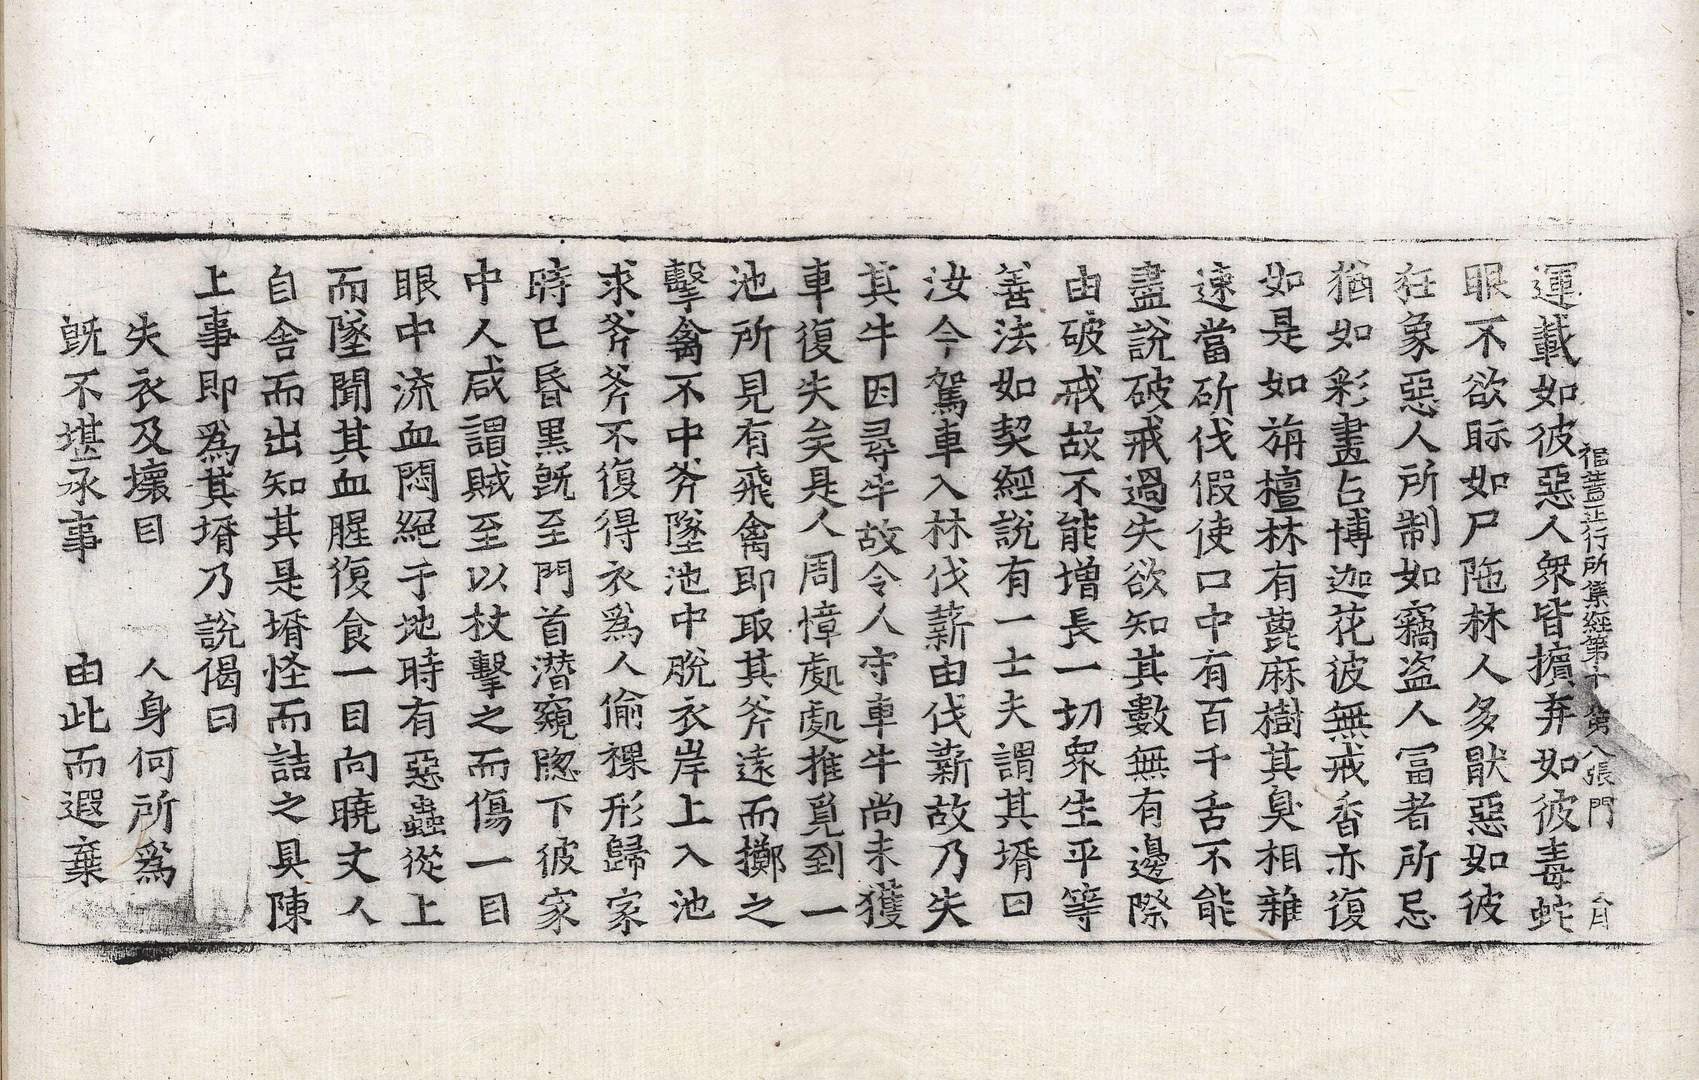 福蓋正行所集經第十 第八張 門
運載如彼惡人衆皆擯弃如彼毒蛇
眼不欲眎如尸陁林人多猒惡如彼
狂象惡人所制如竊盗人冨者所忌
猶如彩畫占博迦花彼無戒香亦復
如是如旃檀林有蓖麻樹其臭相雜
速當斫伐假使口中有百千舌不能
盡說破戒過失欲知其數無有邊際
由破戒故不能增長一切衆生平等
善法如契經說有一士夫謂其壻曰
汝今駕車入林伐薪由伐薪故乃失
其牛因尋牛故令人守車牛尚未獲
車復失矣是人周慞處處推覓到一
池所見有飛禽即取其斧遠而擲之
擊禽不中斧墜池中脫衣岸上入池
求斧斧不復得衣爲人偷裸形歸家
時已昏黑旣至門首潜窺隐下彼家
中人咸謂賊至以杖擊之而傷一目
眼中流血悶絕于地時有惡蟲從上
而墜聞其血腥復食一目向曉丈人
自舍而出知其是壻怪而詰之具陳
上事即爲其壻乃說偈曰
失衣及壞目　人身何所爲
旣不堪承事　由此而遐棄